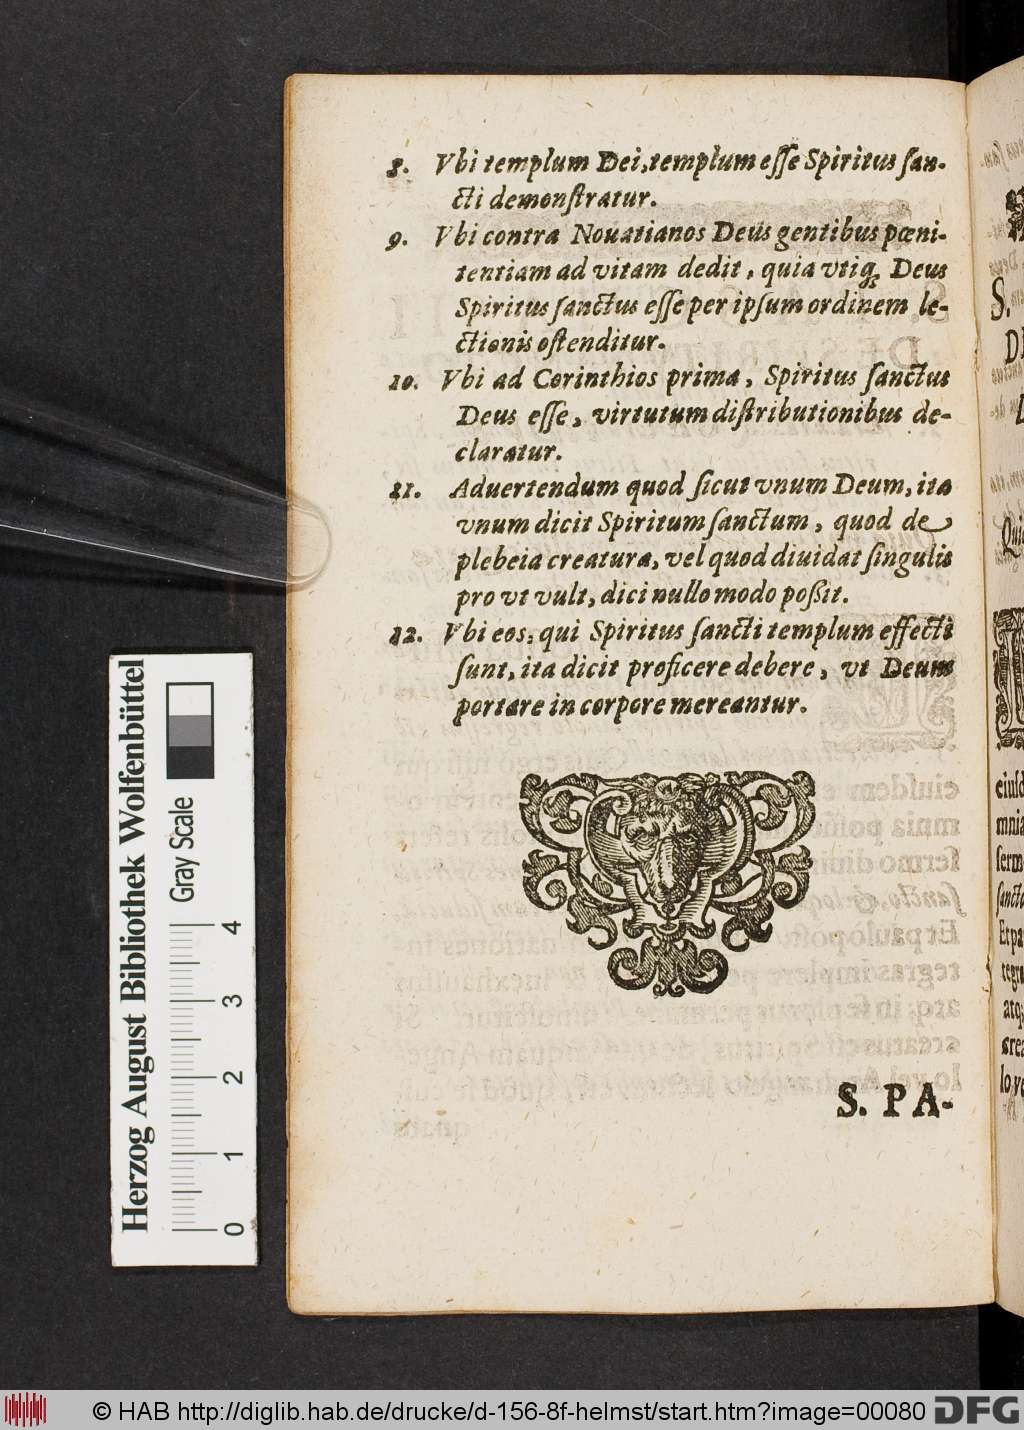 8. Vbi templum Dei, templum esse Spiritus san-
cti demonstratur.
9. Vbi contra Nouatianos Deus gentibus pœni-
tentiam ad vitam dedit, quia vtiq; Deus
Spiritus sanctus esse per ipsum ordinem le-
ctionis ostenditur.
10. Vbi ad Corinthios prima, Spiritus sanctus
Deus esse, virtutum distributionibus de-
claratur.
11. Aduertendum quod sicut vnum Deum, ita
vnum dicit Spiritum sanctum, quod de
plebeia creatura, vel quod diuidat singulis
pro vt vult, dici nullo modo poßit.
12. Vbi eos, qui Spiritus sancti templum effecti
sunt, ita dicit proficere debere, vt Deum
portare in corpore mereantur.
S. PA-
Herzog August Bibliothek Wolfenbüttel
Gray Scale
0 1 2 3 4
© HAB http://diglib.hab.de/drucke/d-156-8f-helmst/start.htm?image=00080
DFG